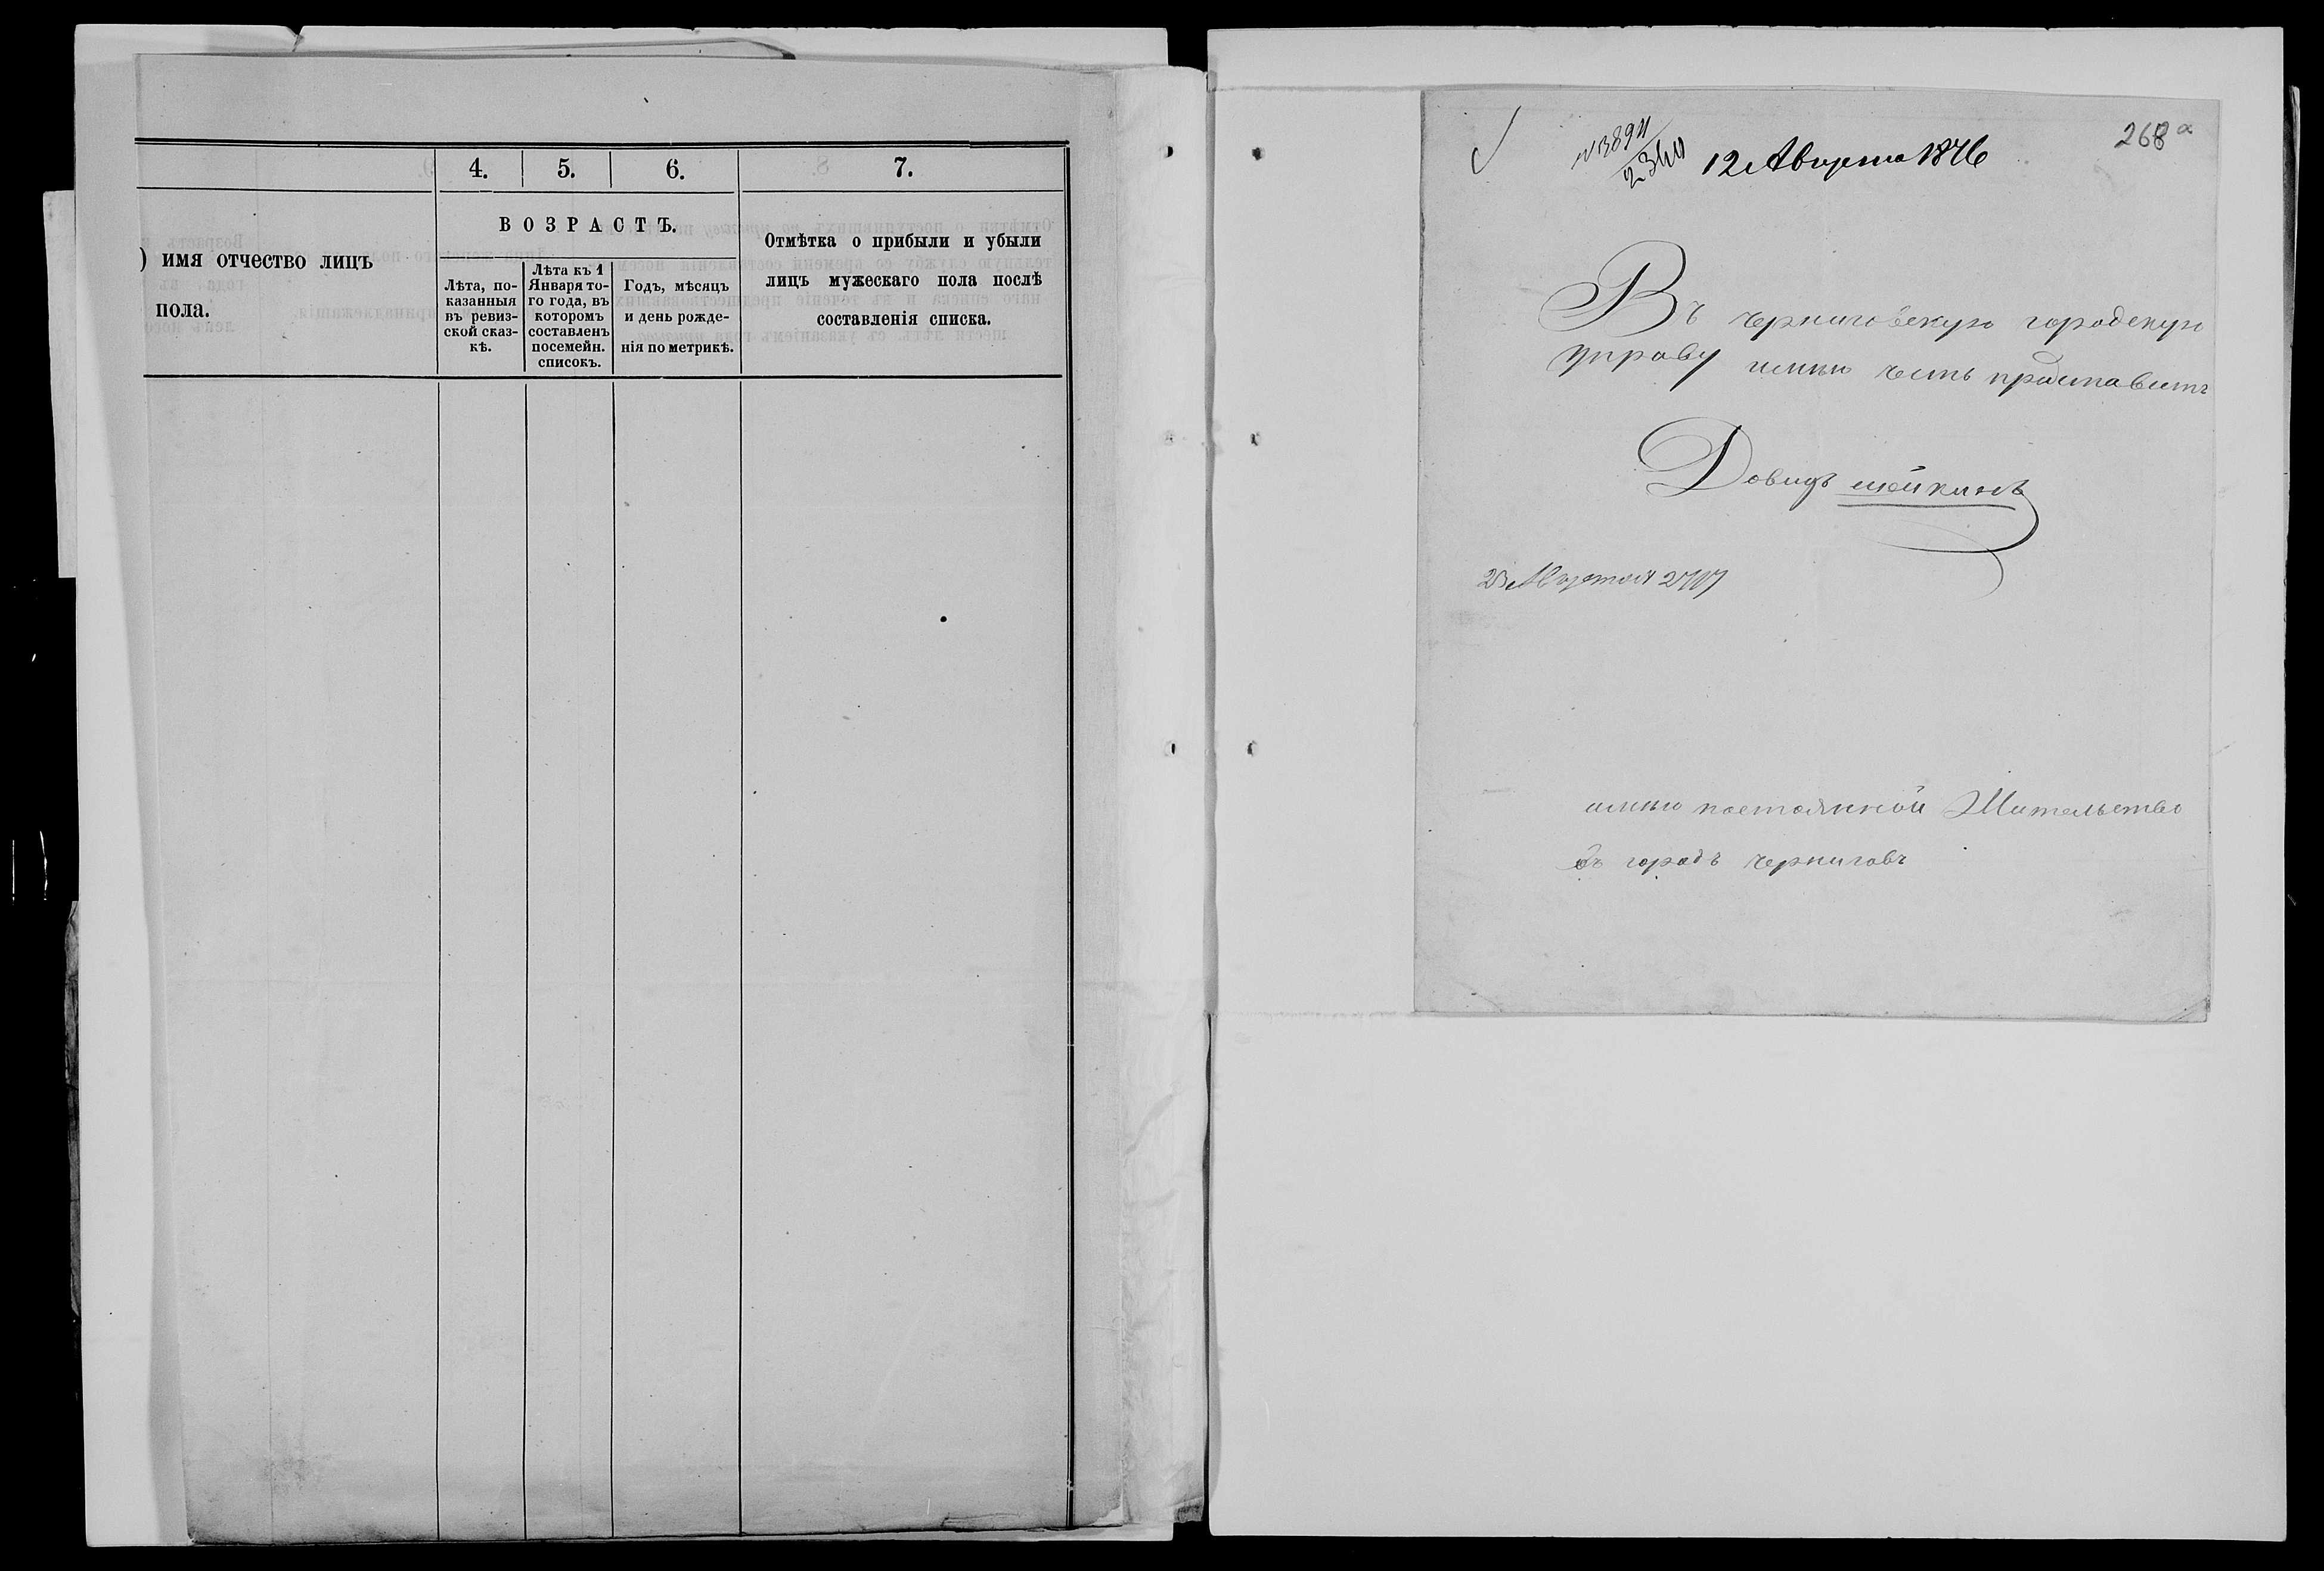 4. 5. 6. 7.
ВОЗРАСТЪ.
) имя отчество лицъ
пола.
Лѣта, по-
казанныя
въ ревиз-
ской сказ-
кѣ.
Лѣта къ 1
Января то-
го года, въ
которомъ
составленъ
посемейн.
списокъ.
Годъ, мѣсяцъ
и день рожде-
нія по метрикѣ.
Отмѣтка о прибыли и убыли
лицъ мужескаго пола послѣ
составленія списка.
268 а
12 Августа 1876
Въ черниговскую городскую
управу имѣю честь представить
Довидъ шейкинъ
имѣю постоянной Жительство
въ городѣ черниговѣ